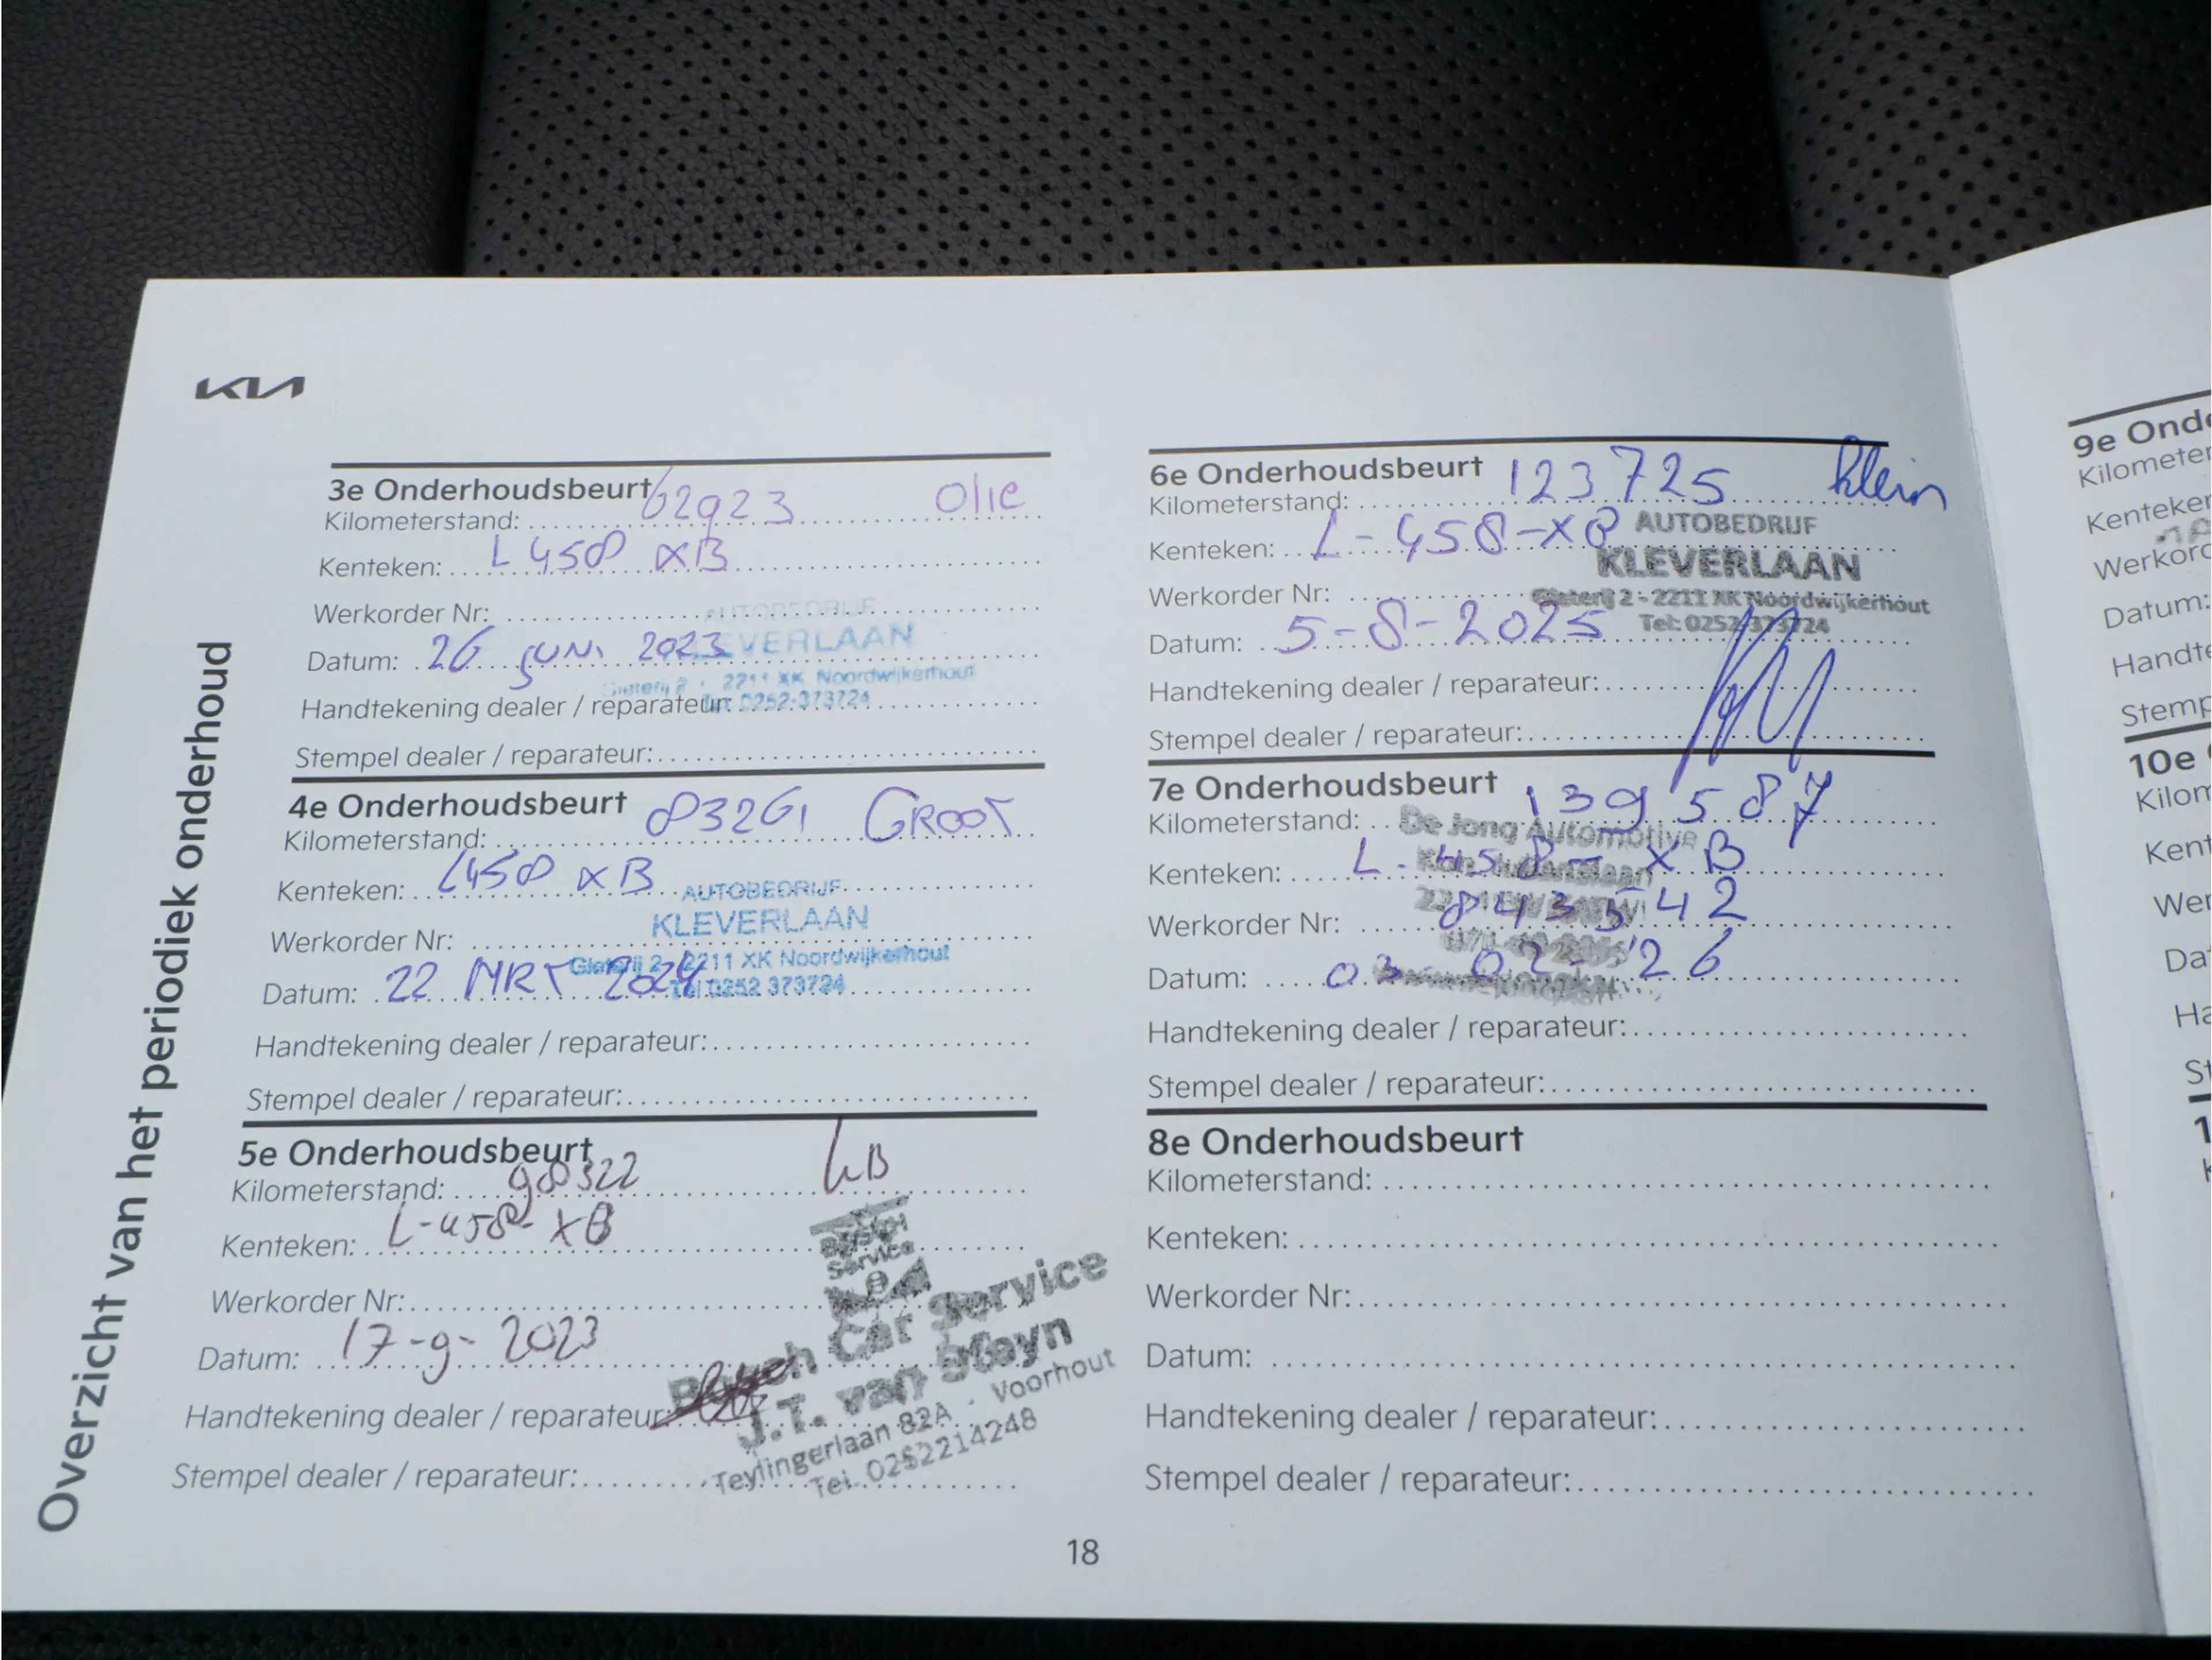 KIA
Overzicht van het periodiek onderhoud
3e Onderhoudsbeurt
Kilometerstand: 62923 Olie
Kenteken: L 458 XB
Werkorder Nr:
AUTOBEDRIJF
KLEVERLAAN
Datum: 26 JUNI 2023
Gieterij 2 - 2211 XK Noordwijkerhout
Handtekening dealer / reparateur:
Tel: 0252-373724
Stempel dealer / reparateur:
4e Onderhoudsbeurt
Kilometerstand: 83261 GROOT
Kenteken: L458 XB
AUTOBEDRIJF
KLEVERLAAN
Werkorder Nr:
Gieterij 2 - 2211 XK Noordwijkerhout
Datum: 22 MRT 2024
Tel 0252 373724
Handtekening dealer / reparateur:
Stempel dealer / reparateur:
5e Onderhoudsbeurt
Kilometerstand: 98322
Kenteken: L-458-XB
Werkorder Nr:
Datum: 17-9-2023
Handtekening dealer / reparateur:
Stempel dealer / reparateur:
Service
Bosch Car Service
J.T. van Steyn
Teylingerlaan 82A - Voorhout
Tel. 0252214248
6e Onderhoudsbeurt
Kilometerstand: 123725 Klein
Kenteken: L-458-XB
AUTOBEDRIJF
KLEVERLAAN
Werkorder Nr:
Gieterij 2 - 2211 XK Noordwijkerhout
Tel: 0252-373724
Datum: 5-8-2025
Handtekening dealer / reparateur:
Stempel dealer / reparateur:
7e Onderhoudsbeurt
Kilometerstand: 139587
De Jong Automotive
Kenteken: L-458-XB
Werkorder Nr: 843542
Datum: 03-02-'26
Handtekening dealer / reparateur:
Stempel dealer / reparateur:
8e Onderhoudsbeurt
Kilometerstand:
Kenteken:
Werkorder Nr:
Datum:
Handtekening dealer / reparateur:
Stempel dealer / reparateur:
18
9e Onde
Kilometer
Kenteken
Werkord
Datum:
Handte
Stemp
10e
Kilom
Kent
Wer
Da
Ha
St
1
K